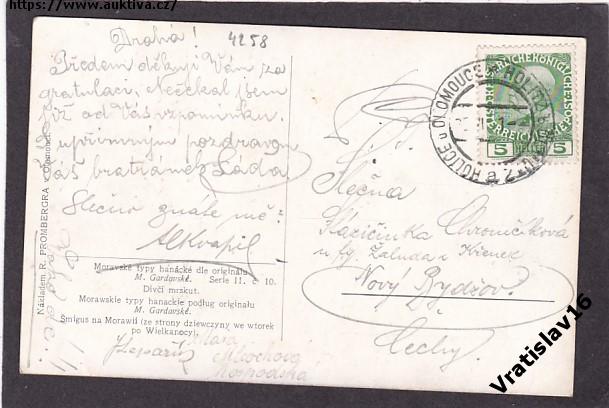 https://www.auktiva.cz/
Drahá!
4258
Předem děkuji Vám za
gratulaci. Nečekal jsem
již od Vás vzpomínku.
S upřímným pozdravem
Váš bratránek Láda
Slečno znáte mě?
AlKvapil
Nákladem R. PROMBERGRA v Olomouci.
Moravské typy hanácké dle originálu
M. Gardavské. Serie 11. č. 10.
Dívčí mrskut.
Morawskie typy hanackie podług originału
M. Gardavské.
Śmigus na Morawii (ze strony dziewczyny we wtorek
po Wielkanocy)
Mlochová
HOLICE u OLOMOUCE
5 5
Slečna
Chromčíková
u fy. Žaluda a Křenek
Nový Bydžov.
Čechy
Vratislav16